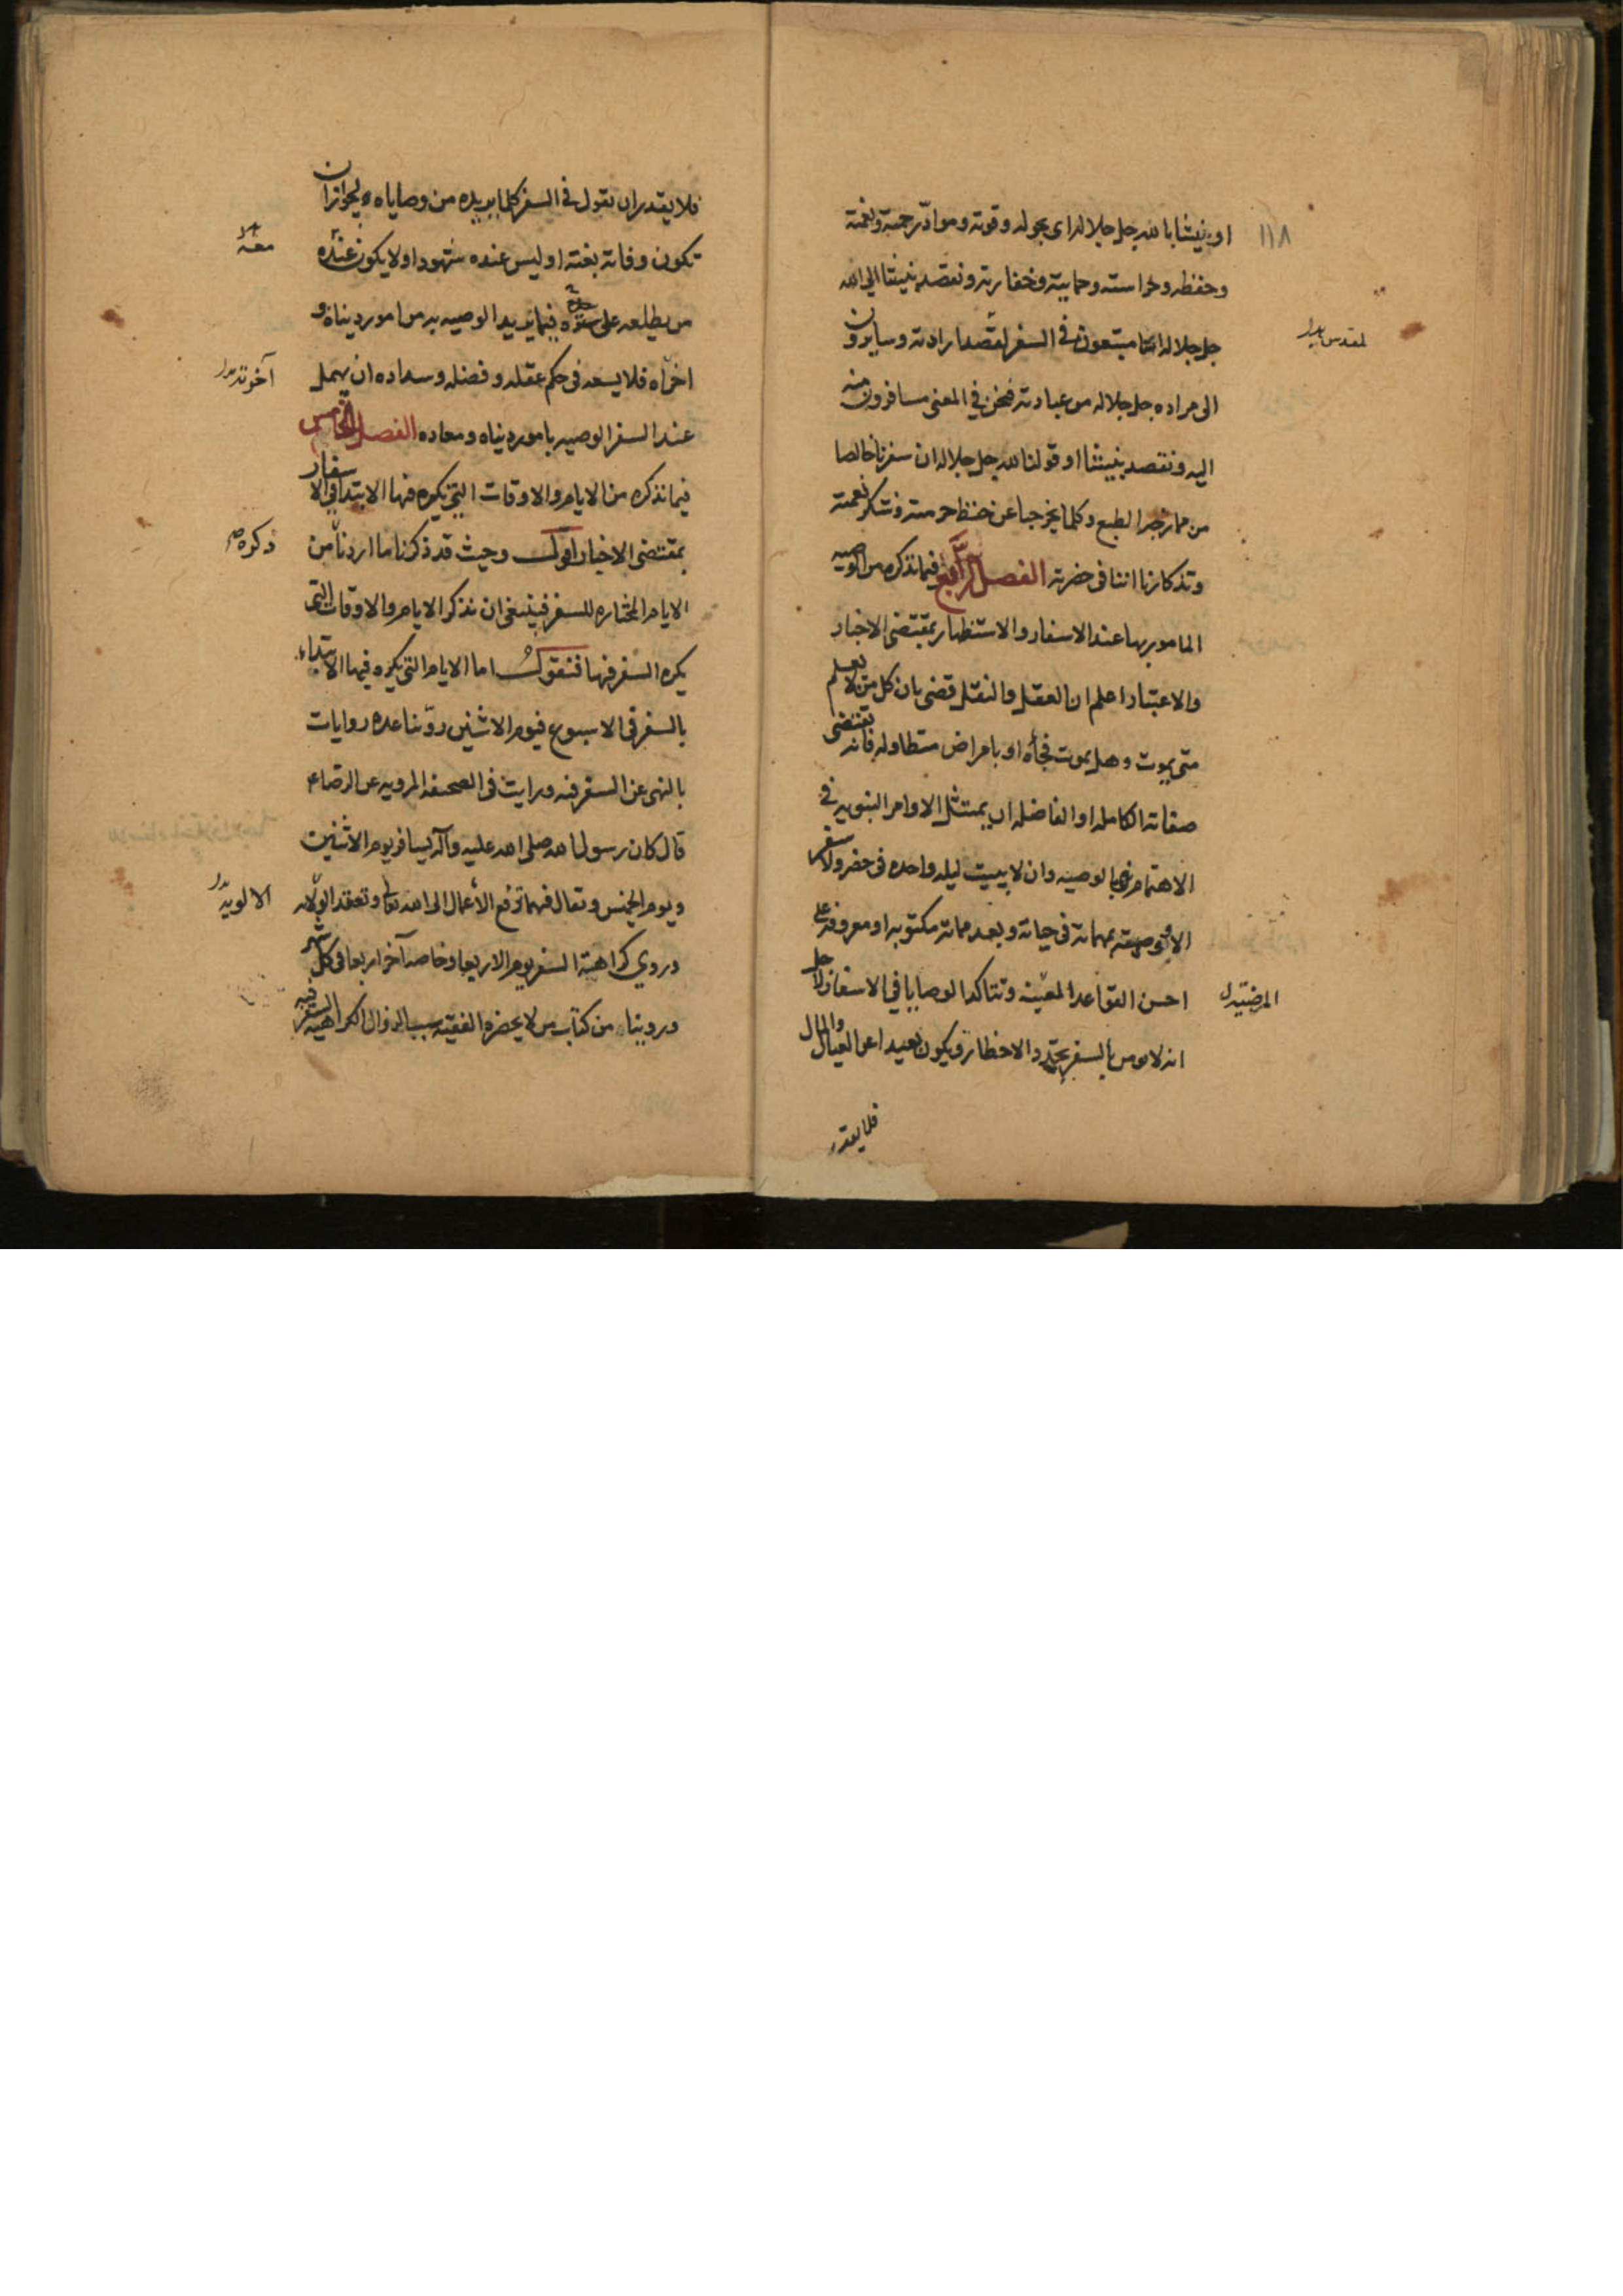 ١١٨
او بنيتنا بالله جل جلاله اى بحوله وقوته ومواد رحمته ونعمته
وحفظه وحراسته وحمايته وخفارته ونقصد بنيتنا الى الله
جل جلاله اننا متبعون فى السفر لقصد ارادته وسايرون
لمقدس
الى مراده جل جلاله من عبادته فنحن في المعنى مسافرون منه
اليه ونقصد بنيتنا او قولنا لله جل جلاله ان سفرنا خالصا
من ممازجه الطبع وكلما يخرجنا عن حفظ حرمته وشكر نعمته
وتذكارنا اننا فى حضرته الفصل الرابع فيما نذكره من الوصيه
المامور بها عند الاسفار والاستظهار بمقتضى الاخبار
والاعتبار اعلم ان العقل والنقل قضى بان كل من لا يعلم
متى يموت وهل يموت فجأه او بامراض متطاوله فانه تقتضى
صفاته الكامله او الفاضله ان يمتثل الاوامر النبويه فى
الاهتمام بالوصيه وان لا يبيت ليله واحده فى حضر ولا سفر
الا ووصيته بمهماته فى حياته وبعد مماته مكتوبه او معروفه على
احسن القواعد المعينه وتتاكد الوصايا في الاسفار لاجل
المرضية
انه لا يومن بالسفر تجدد الاخطار ويكون بعيدا عن العيال والمال
فلا يقدر
فلا يقدر ان يقول فى السفر كلما يريده من وصاياه ولجواز ان
تكون وفاته بغتة او ليس عنده شهود او لا يكون عنده
معه
من يطلعه على سره فيما يريد الوصيه به من امور دنياه و
اخراه فلا يسعه فى حكم عقله وفضله وسداده ان يهمل
آخرته
عند السفر الوصيه بامور دنياه ومعاده الفصل الخامس
فيما نذكره من الايام والاوقات التى يكره فيها الابتدا فى الاسفار
بمقتضى الاخبار اقول وحيث قد ذكرنا ما اردنا من
ذكره
الايام المختاره للسفر فينبغى ان نذكر الايام والاوقات التى
يكره السفر فيها فنقول اما الايام التى يكره فيها الابتداء
بالسفر فى الاسبوع فيوم الاثنين روينا عده روايات
بالنهى عن السفر فيه ورايت فى الصحيفه المرويه عن الرضا ع
قال كان رسول الله صلى الله عليه وآله يسافر يوم الاثنين
ويوم الخميس وتقال فيهما ترفع الأعمال الى الله تعالى وتعقد الولاه
الالويه
وروي كراهية السفر يوم الاربعا وخاصه آخر اربعا فى كل شهر
وروينا من كتاب من لا يحضره الفقيه سبب زوال الكراهيه السفر فيه